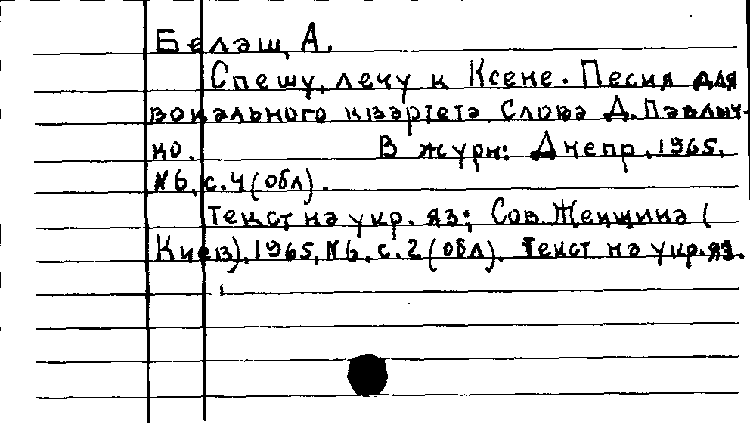 Белаш, А.
Спешу, лечу к Ксене. Песня для
вокального квартета. Слова Д. Павлыч-
ко. В журн: Днепр, 1965,
№6, с.4 (обл).
Текст на укр. яз; Сов. Женщина (
Киев), 1965, №6, с.2 (обл). Текст на укр.яз.